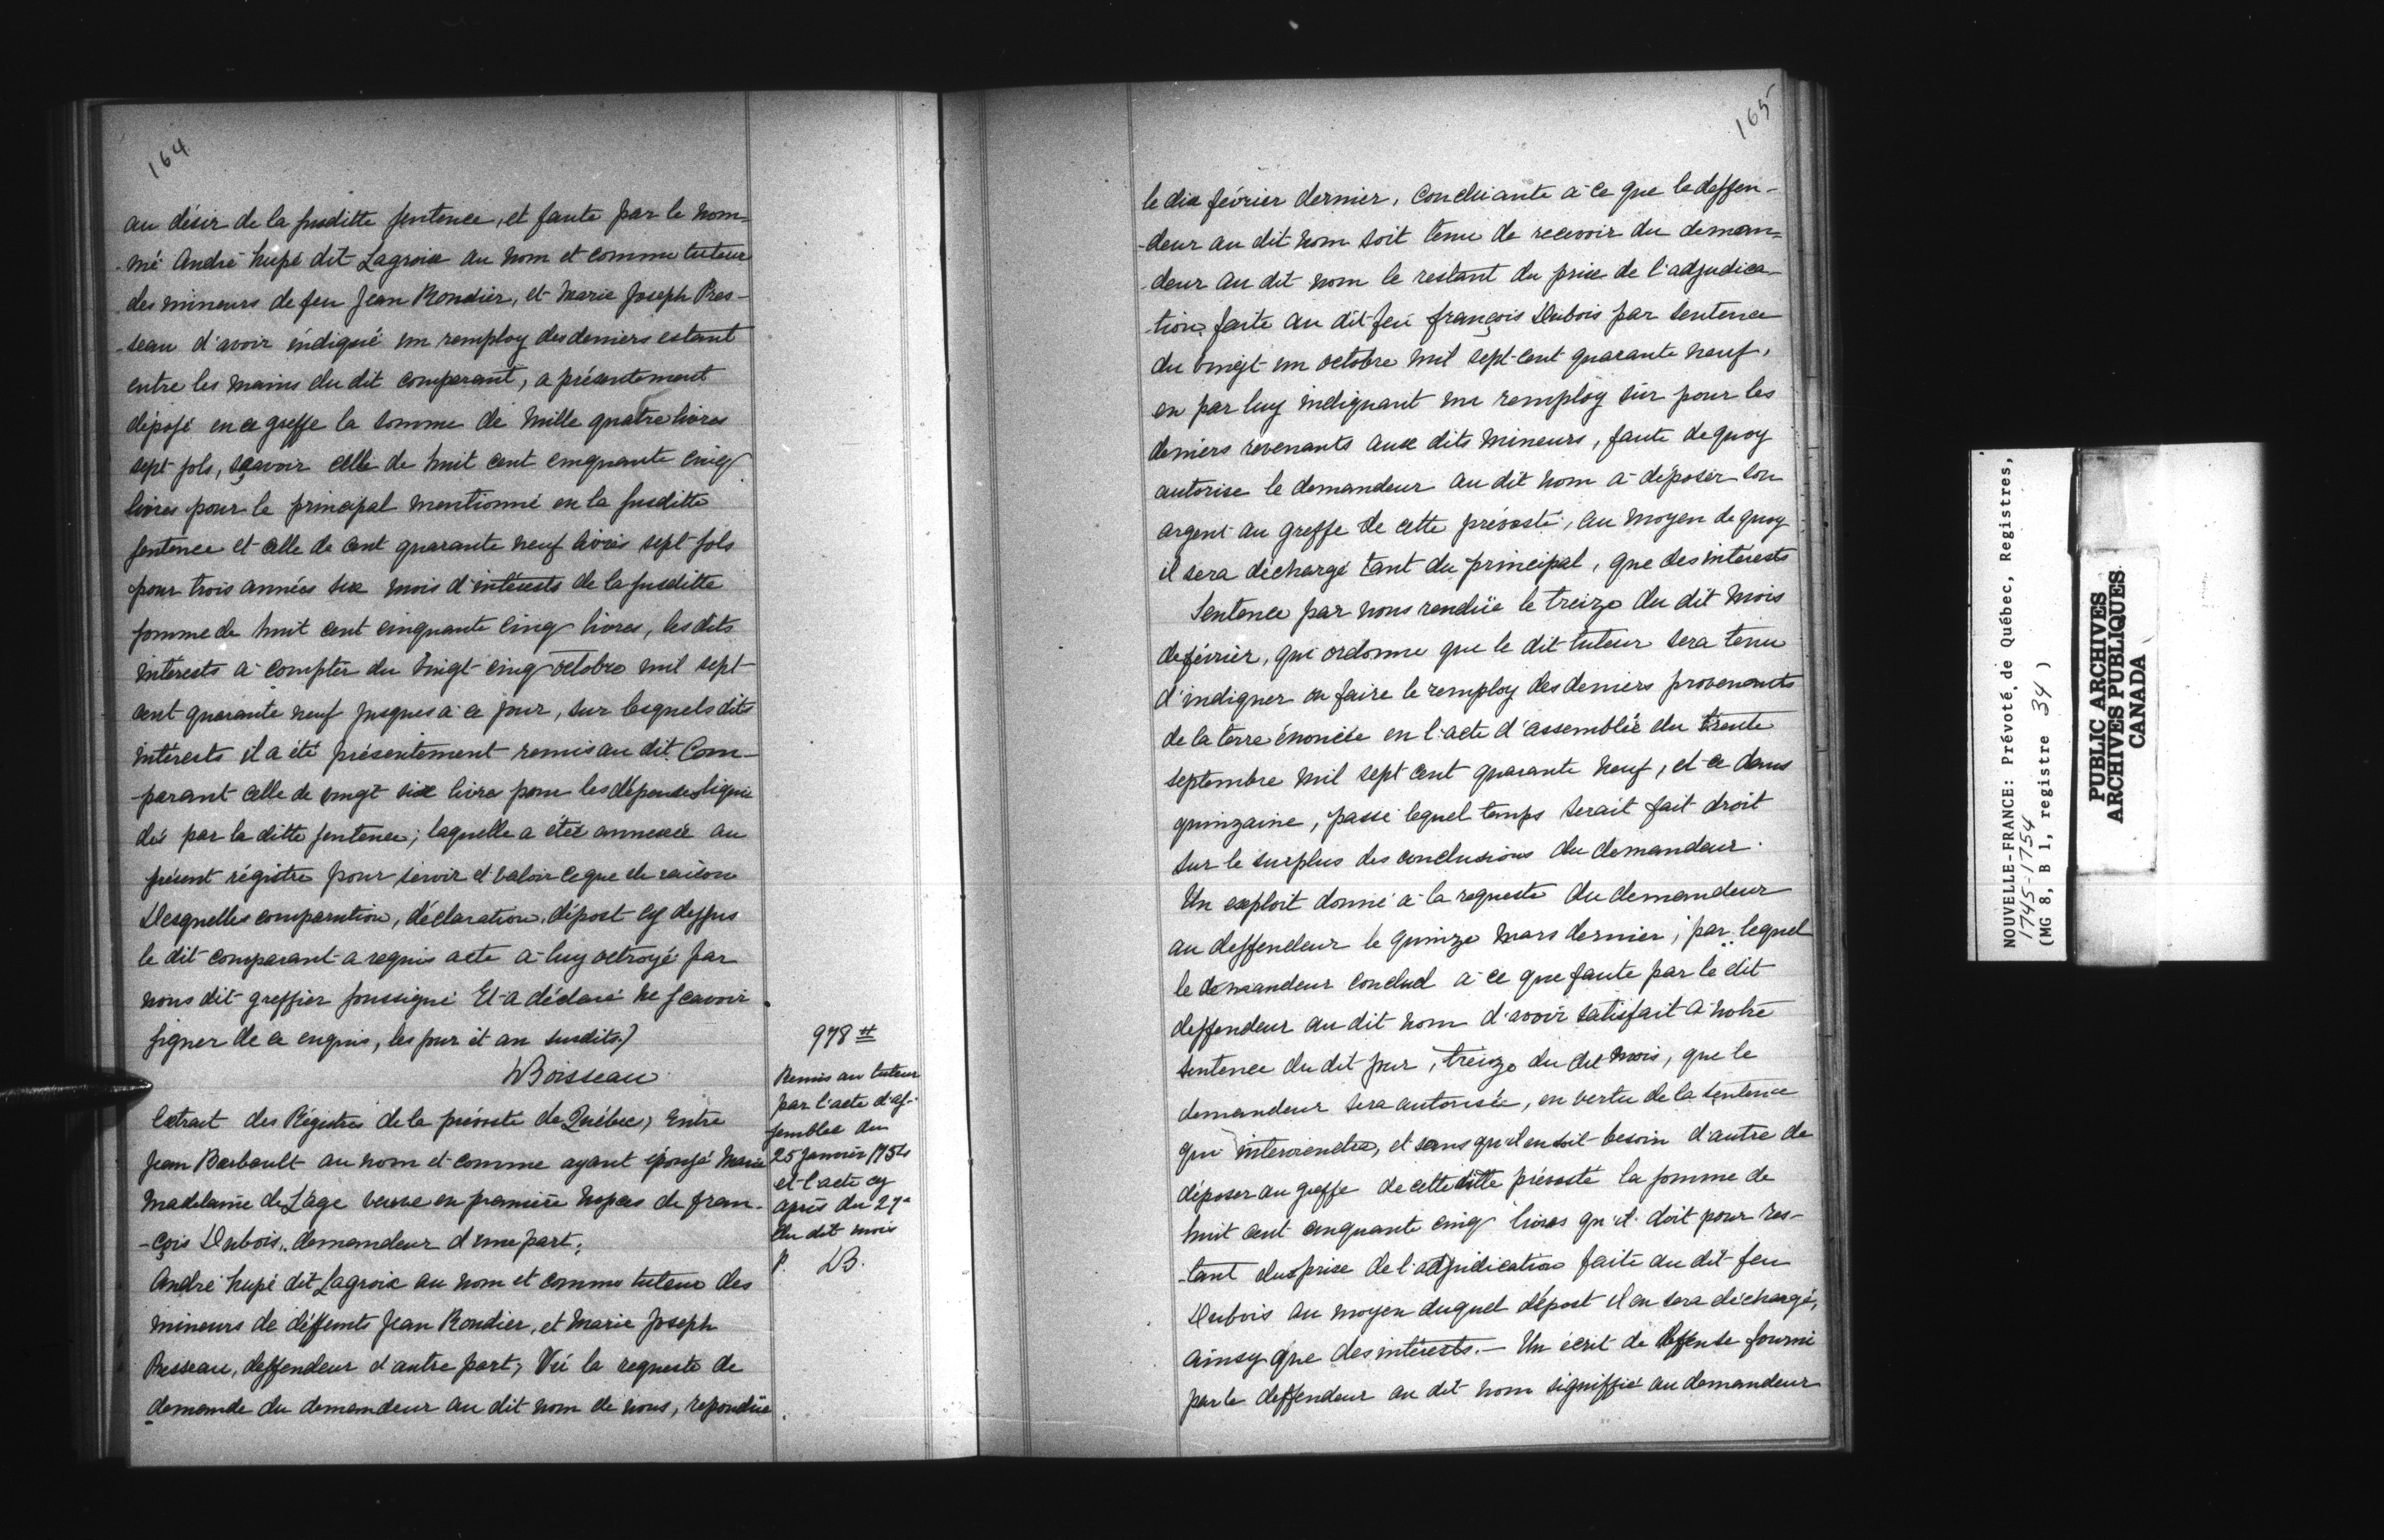 164
au désir de la susditte sentence, et faute par le nom-
-mé André hupé dit Lagroix au nom et comme tuteur
des mineurs de feu Jean Rondier, et Marie Joseph Pres-
-seau d'avoir indiqué un remploy des deniers estant
entre les mains du dit comparant, a présentement
déposé en ce greffe la somme de mille quatre livres
sept sols, sçavoir celle de huit cent cinquante cinq
livres pour le principal mentionné en la susditte
sentence et celle de cent quarante neuf livres sept sols
pour trois années six mois d'intérests de la susditte
somme de huit cent cinquante cinq livres, les dits
intérests à compter du vingt cinq octobre mil sept
cent quarante neuf jusques à ce jour, sur lesquels dits
intérests il a été présentement remis au dit Com-
-parant celle de vingt six livre pour les dépenses liqui
dés par la ditte sentence; laquelle a étéé annexée au
présent régistre pour servir et valoir ce que de raison
Desquelles comparution, déclaration, dépost cy dessus
le dit comparant a requis acte à luy octroyé par
nous dit greffier soussigné Et a déclaré ne sçavoir
signer de ce enquis, les jour et an susdits./
Boisseau
978 ₶
Remis au tuteur
par l'acte d'as-
semblée du
25 janvier 1754
et l'acte cy
après du 27e
du dit mois
P. DB.
Extrait des Régistres de la prévosté de Québec, Entre
Jean Barbault au nom et comme ayant épousé Marie
Madelaine de Lage veuve en première nopces de fran-
-çois Dubois, demandeur d'une part;
André hupé dit Lagroix au nom et comme tuteur des
mineurs de déffunts Jean Rondier, et Marie Joseph
Presseau, deffendeur d'autre part; Vû la requeste de
demande du demandeur au dit nom de nous, repondüe
165
le dix février dernier, Concluante à ce que le deffen-
-deur au dit nom soit tenu de recevoir du deman-
-deur au dit nom le restant du prix de l'adjudica-
-tion faite au dit feu françois Dubois par sentence
du vingt un octobre mil sept cent quarante neuf,
en par luy indiquant un remploy sûr pour les
deniers revenants aux dits mineurs, faute de quoy
autorise le demandeur au dit nom à déposer son
argent au greffe de cette prévosté, au moyen de quoy
il sera déchargé tant du principal, que des intérests
Sentence par nous rendüe le treize du dit mois
de février, qui ordonne que le dit tuteur sera tenu
d'indiquer ou faire le remploy des deniers provenants
de la terre énoncée en l'acte d'assemblée du trente
septembre mil sept cent quarante neuf, et ce dans
quinzaine, passé lequel temps serait fait droit
sur le surplus des conclusions du demandeur.
Un exploit donné à la requeste du demandeur
au deffendeur le quinze mars dernier; par lequel
le demandeur conclud à ce que faute par le dit
deffendeur au dit nom d'avoir satisfait à notre
sentence du dit jour, treize du dit mois, que le
demandeur sera autorisée, en vertu de la sentence
qui interviendra, et sans qu'il en soit besoin d'autre de
déposer au greffe de cette ditte prévosté la somme de
huit cent cinquante cinq livres qu'il doit pour res-
-tant du prix de l'adjudication faite au dit feu
Dubois au moyen duquel dépost il en sera déchargé,
ainsy que des intérests. — Un écrit de deffense fourni
par le deffendeur au dit nom signiffié au demandeur
NOUVELLE-FRANCE: Prévoté de Québec, Registres,
1745-1754
(MG 8, B 1, registre 34 )
PUBLIC ARCHIVES
ARCHIVES PUBLIQUES
CANADA